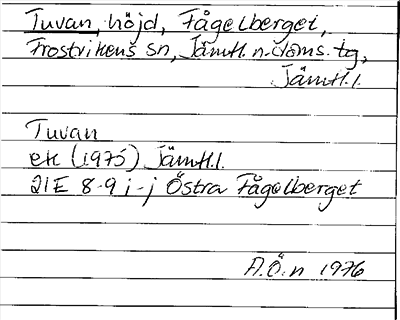 Tuvan, höjd, Fågelberget,
Frostvikens sn, Jämtl. n. doms. tg,
Jämtl. l.
Tuvan
ek (1975) Jämtl. l.
21E 8-9 i-j Östra Fågelberget
A.Ö:n 1976